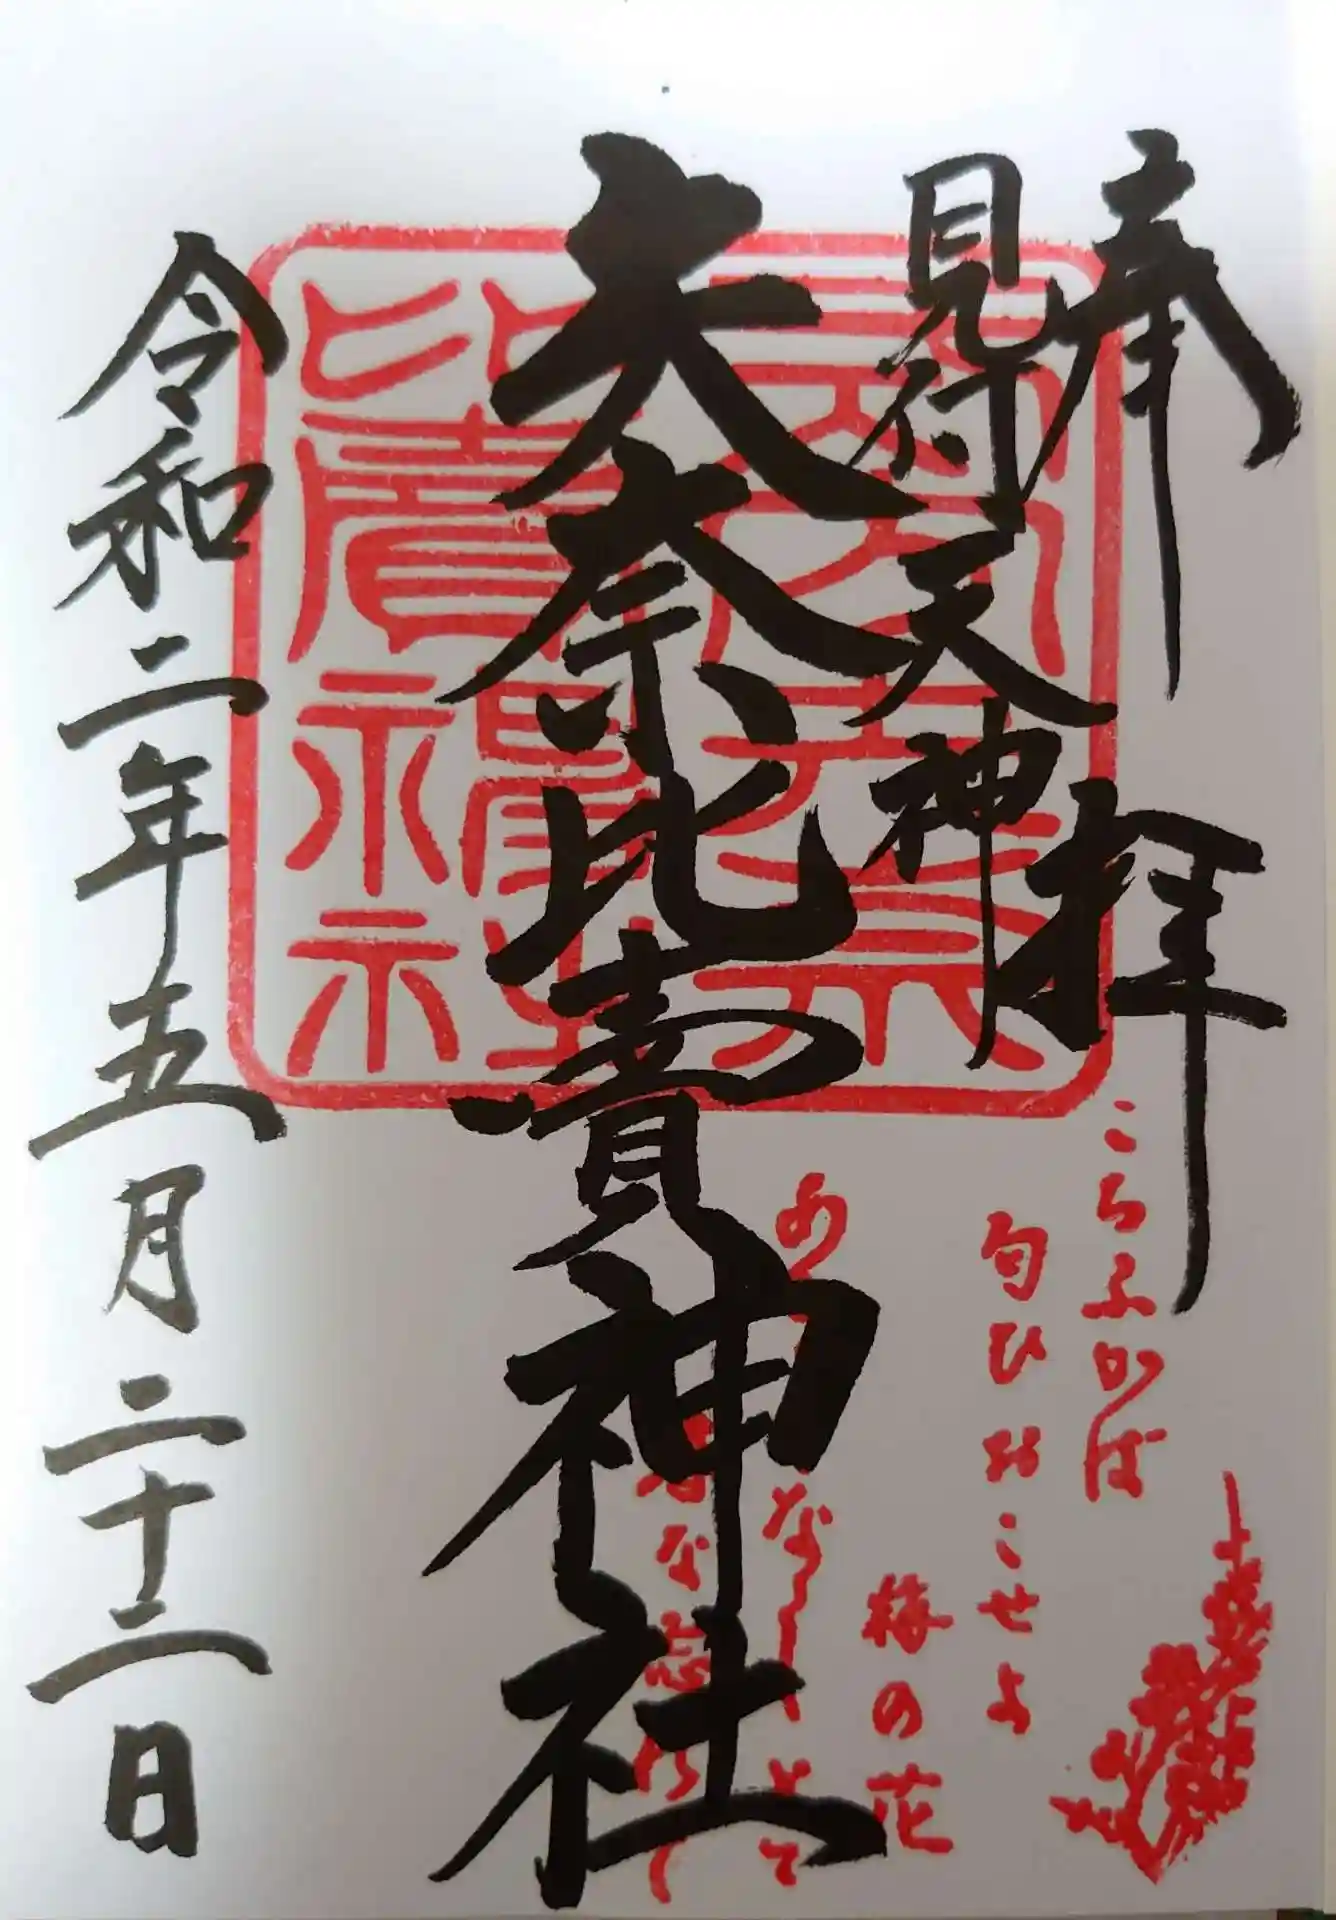 奉拝
見付天神
矢奈比賣神社
令和二年五月二十二日
こちふかば
匂ひおこせよ
梅の花
なしとて
な忘れ